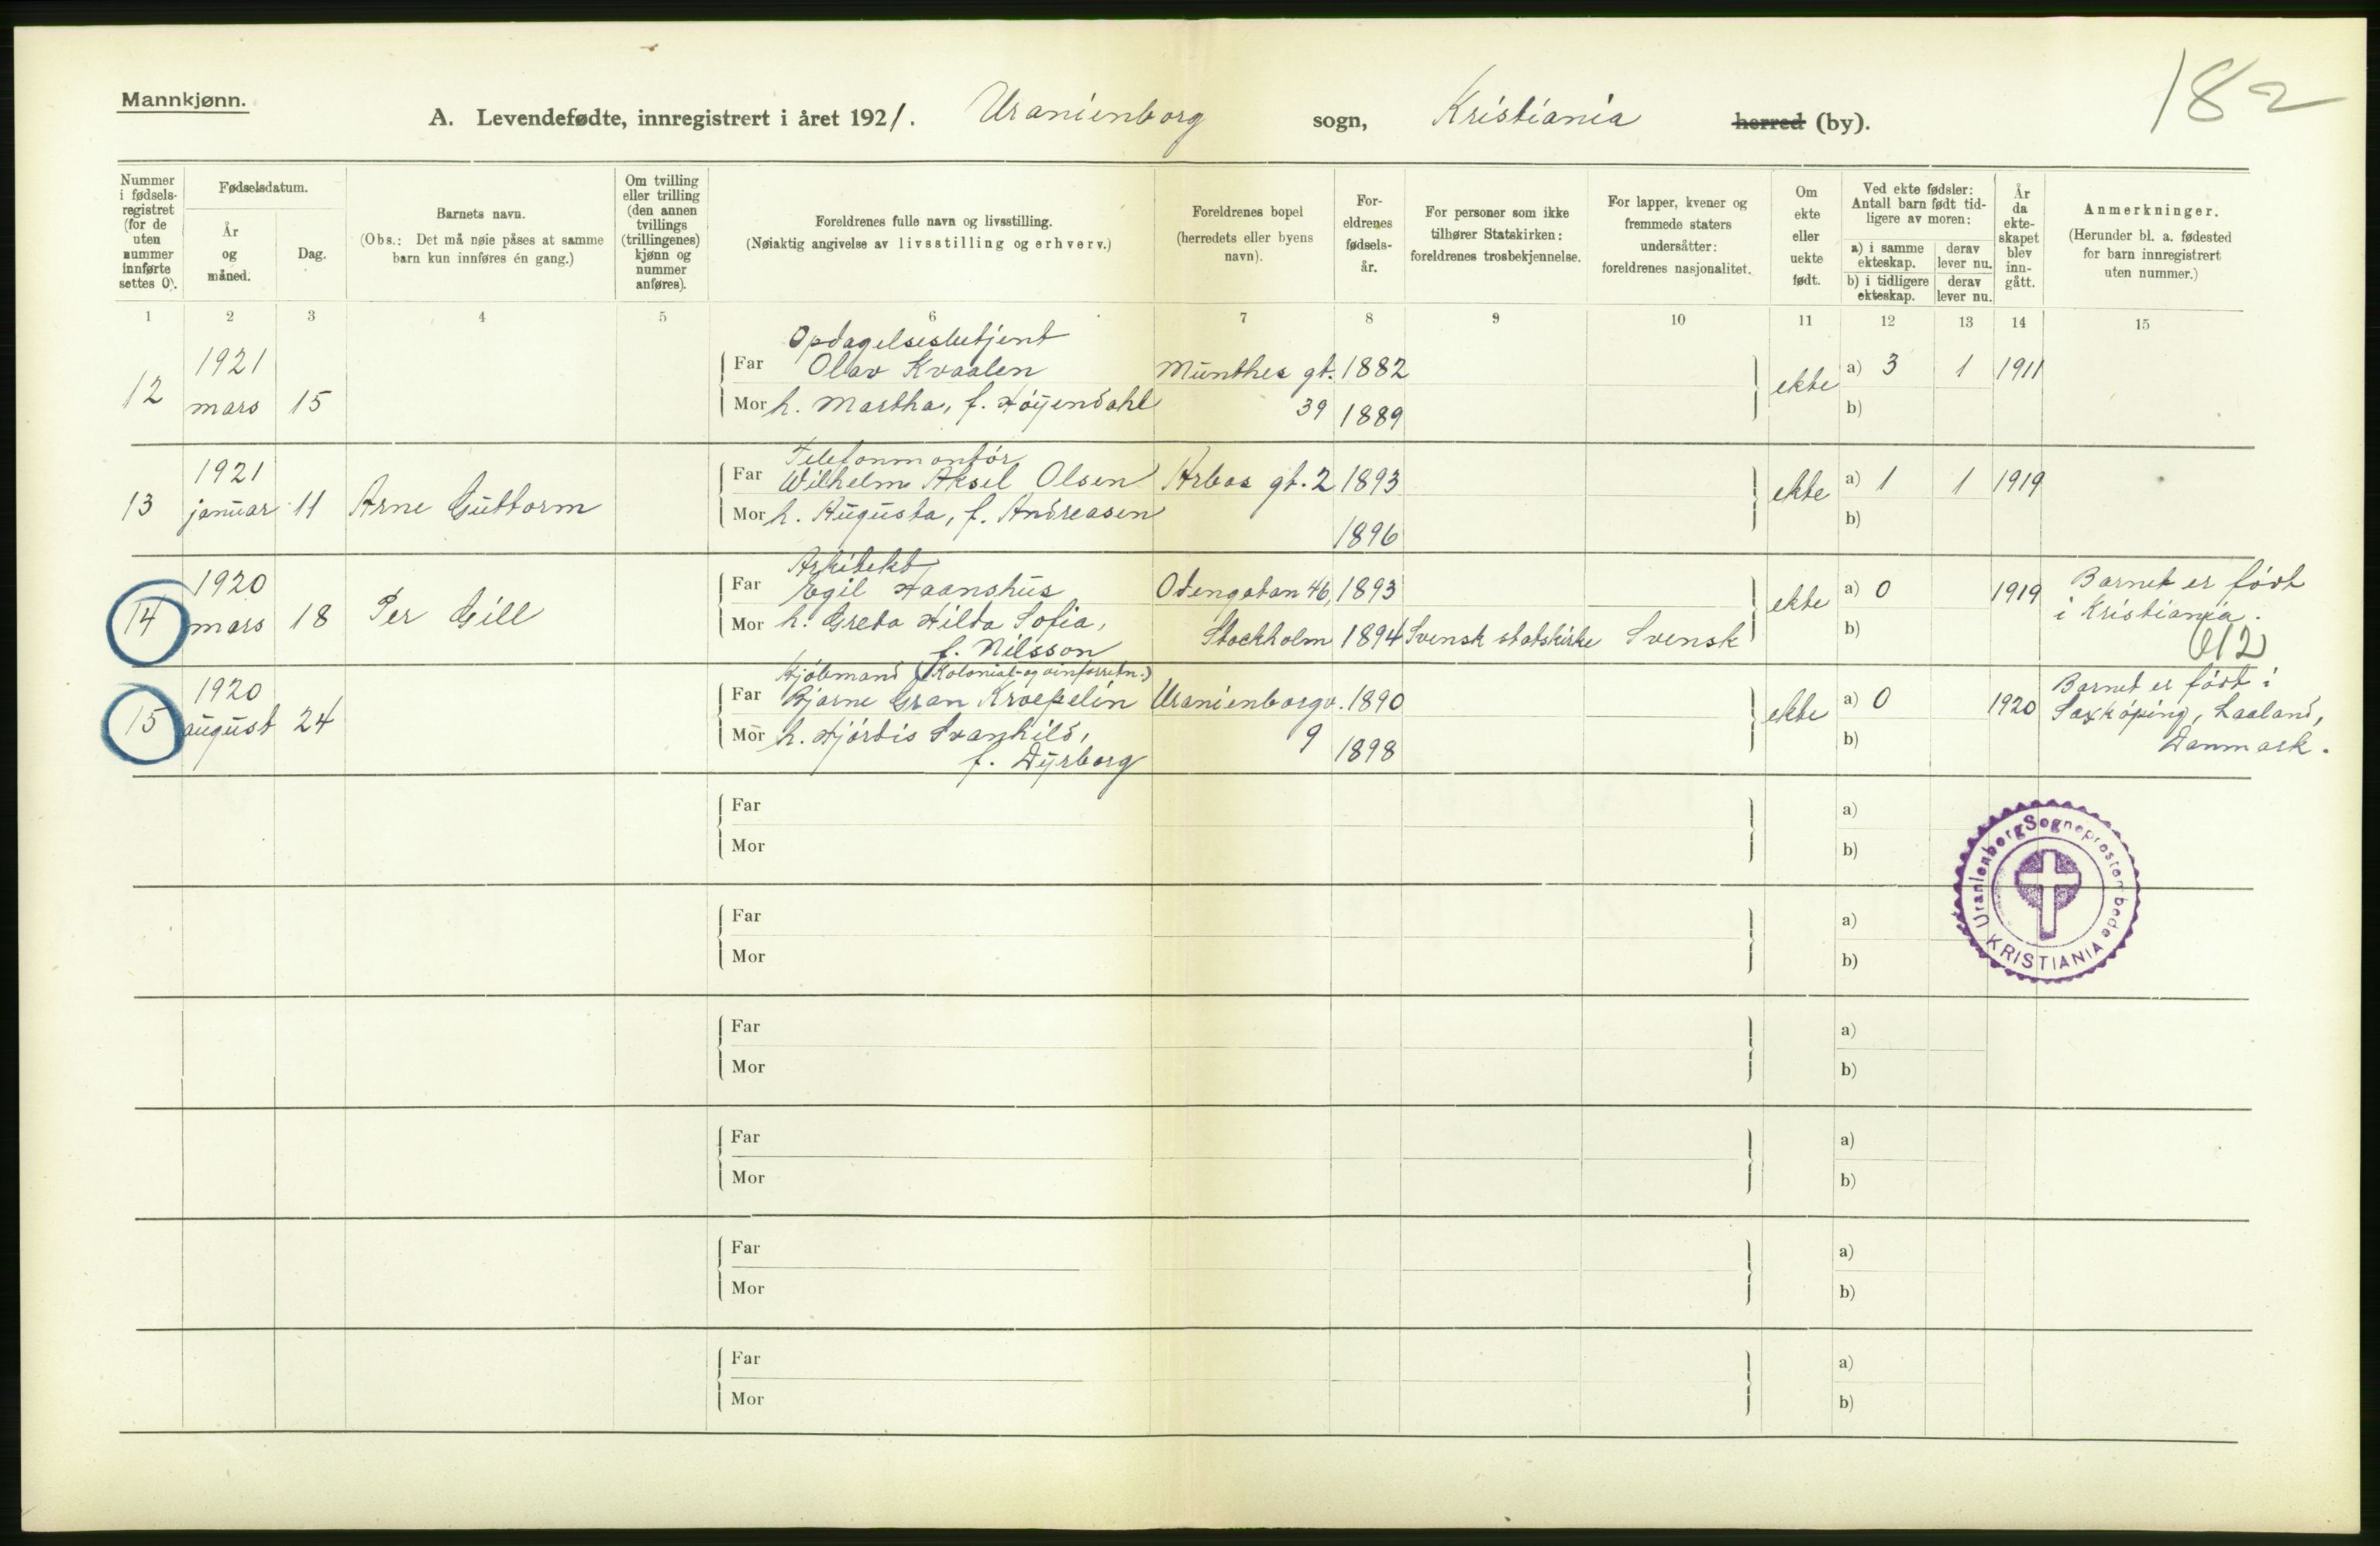 182
Mannkjønn.
A. Levendefødte, innregistrert i året 1921. Uranienborg sogn, Kristiania herred (by).
Nummer i fødsels-registret (for de uten nummer innførte settes 0).
Fødselsdatum.
År og måned.
Dag.
Barnets navn.
(Obs.: Det må nøie påses at samme barn kun innføres én gang.)
Om tvilling eller trilling (den annen tvillings (trillingenes) kjønn og nummer anføres).
Foreldrenes fulle navn og livsstilling.
(Nøiaktig angivelse av livsstilling og erhverv.)
Foreldrenes bopel (herredets eller byens navn).
For-eldrenes fødsels-år.
For personer som ikke tilhører Statskirken: foreldrenes trosbekjennelse.
For lapper, kvener og fremmede staters undersåtter: foreldrenes nasjonalitet.
Om ekte eller uekte født.
Ved ekte fødsler: Antall barn født tid-ligere av moren:
a) i samme ekteskap. derav lever nu.
b) i tidligere ekteskap. derav lever nu.
År da ekte-skapet blev inn-gått.
Anmerkninger.
(Herunder bl. a. fødested for barn innregistrert uten nummer.)
1 2 3 4 5 6 7 8 9 10 11 12 13 14 15
Opdagelsesbetjent
12 1921 Far Olav Kvaalen Munthes gt. 1882 ekte a) 3 1 1911
mars 15 Mor h. Martha, f. Høyendahl 39 1889 b)
Telefonmontør
13 1921 Far Wilhelm Aksel Olsen Arbos gt. 2 1893 ekte a) 1 1 1919
januar 11 Arne Guttorm Mor h. Augusta, f. Andreasen 1896 b)
Arkitekt
14 1920 Far Egil Haanshus Odengatan 46, 1893 ekte a) 0 1919 Barnet er født
mars 18 Per Gill Mor h. Greta Hilda Sofia, Stockholm 1894 Svensk statskirke Svensk b) i Kristiania.
f. Nilsson
Kjøbmand (Kolonial- og vinforretn.)
15 1920 Far Bjarne Gran Kroepelin Uranienborgv. 1890 ekte a) 0 1920 Barnet er født i
august 24 Mor h. Hjørdis Svanhild, 9 1898 b) Saxkøping, Laaland,
f. Dyrborg Danmark.
Far a)
Mor b)
Far a)
Mor b)
Far a)
Mor b)
Far a)
Mor b)
Far a)
Mor b)
Far a)
Mor b)
Uranienborg Sogneprestembede
KRISTIANIA